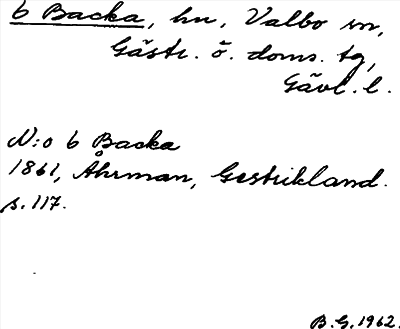 6 Backa, hn, Valbo sn,
Gästr. ö. doms. tg,
Gävl. l.
N:o 6 Backa
1861, Åhrman, Gestrikland.
s. 117.
B.G. 1962.